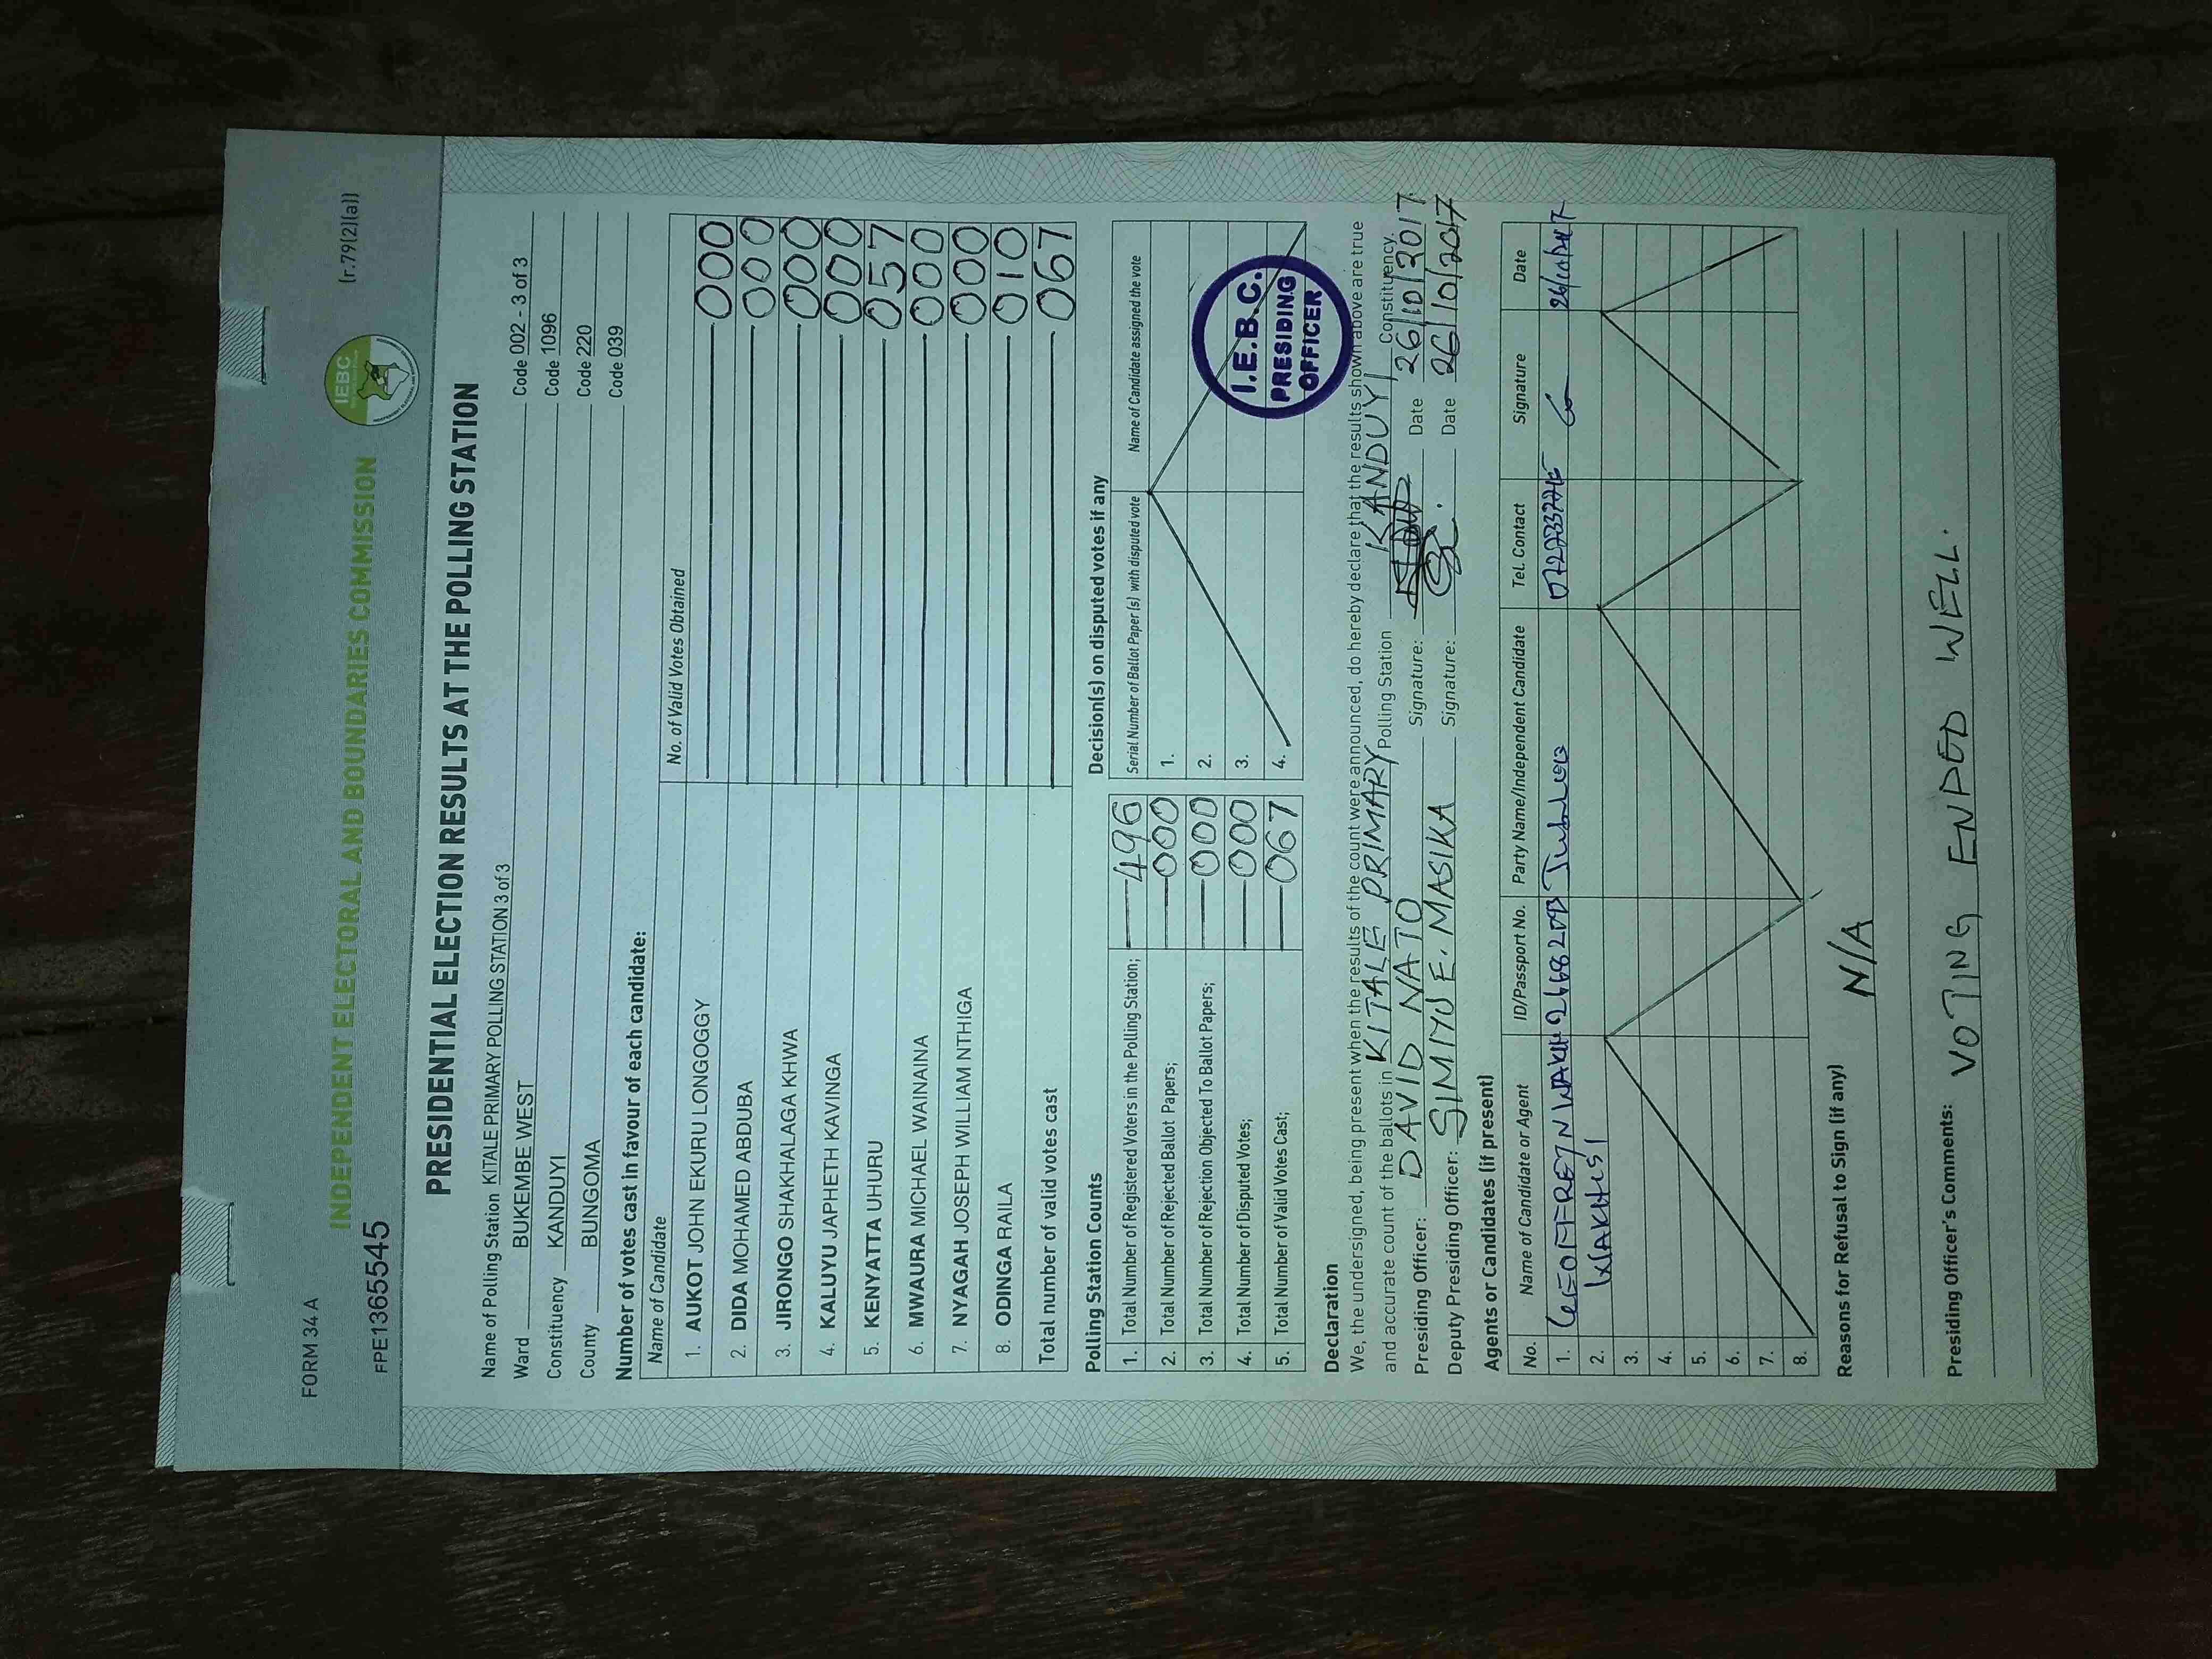 FORM 34 A
(r.79(2)(a))
IEBC
INDEPENDENT ELECTORAL AND BOUNDARIES COMMISSION
FPE1365545
PRESIDENTIAL ELECTION RESULTS AT THE POLLING STATION
Name of Polling Station KITALE PRIMARY POLLING STATION 3 of 3 Code 002 - 3 of 3
Ward BUKEMBE WEST Code 1096
Constituency KANDUYI Code 220
County BUNGOMA Code 039
Number of votes cast in favour of each candidate:
Name of Candidate No. of Valid Votes Obtained
1. AUKOT JOHN EKURU LONGOGGY 000
2. DIDA MOHAMED ABDUBA 000
3. JIRONGO SHAKHALAGA KHWA 000
4. KALUYU JAPHETH KAVINGA 000
5. KENYATTA UHURU 057
6. MWAURA MICHAEL WAINAINA 000
7. NYAGAH JOSEPH WILLIAM NTHIGA 000
8. ODINGA RAILA 010
Total number of valid votes cast 067
Polling Station Counts
1. Total Number of Registered Voters in the Polling Station; 496
2. Total Number of Rejected Ballot Papers; 000
3. Total Number of Rejection Objected To Ballot Papers; 000
4. Total Number of Disputed Votes; 000
5. Total Number of Valid Votes Cast; 067
Decision(s) on disputed votes if any
Serial Number of Ballot Paper (s) with disputed vote Name of Candidate assigned the vote
1.
2.
3.
4.
I.E.B.C.
PRESIDING
OFFICER
Declaration
We, the undersigned, being present when the results of the count were announced, do hereby declare that the results shown above are true
and accurate count of the ballots in KITALE PRIMARY Polling Station KANDUYI Constituency.
Presiding Officer: DAVID NATO Signature: Date 26/10/2017.
Deputy Presiding Officer: SIMIYU E. MASIKA Signature: Date 26/10/2017
Agents or Candidates (if present)
No. Name of Candidate or Agent ID/Passport No. Party Name/Independent Candidate Tel. Contact Signature Date
1. GEOFFREY N Jubilee
2.
3.
4.
5.
6.
7.
8.
Reasons for Refusal to Sign (if any)
N/A
Presiding Officer's Comments: VOTING ENDED WELL.